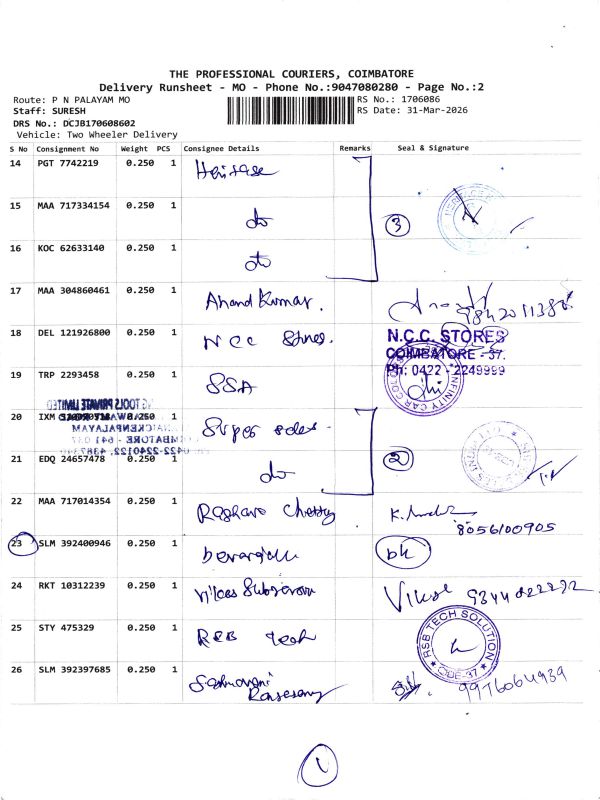 THE PROFESSIONAL COURIERS, COIMBATORE
Delivery Runsheet - MO - Phone No.:9047080280 - Page No.:2
Route: P N PALAYAM MO
RS No.: 1706086
Staff: SURESH
RS Date: 31-Mar-2026
DRS No.: DCJB170608602
Vehicle: Two Wheeler Delivery
S No Consignment No Weight PCS Consignee Details Remarks Seal & Signature
14 PGT 7742219 0.250 1
15 MAA 717334154 0.250 1 do 3
16 KOC 62633140 0.250 1 do
17 MAA 304860461 0.250 1 Anand Kumar.
18 DEL 121926800 0.250 1 NCC Stores. N.C.C. STORES
COIMBATORE - 37.
19 TRP 2293458 0.250 1 SSA Ph: 0422 - 2249999
INFINITY CAR
TOOLS PRIVATE LIMITED
20 IXM 0.250 1 Super sales
0422-2240122, 4387
21 EDQ 24657478 0.250 1 do 2
22 MAA 717014354 0.250 1 Raghavo Chetty K.
8056100905
23 SLM 392400946 0.250 1
24 RKT 10312239 0.250 1
25 STY 475329 0.250 1 RSB tech RSB TECH SOLUTION
CBE-37
26 SLM 392397685 0.250 1 9976064939
1